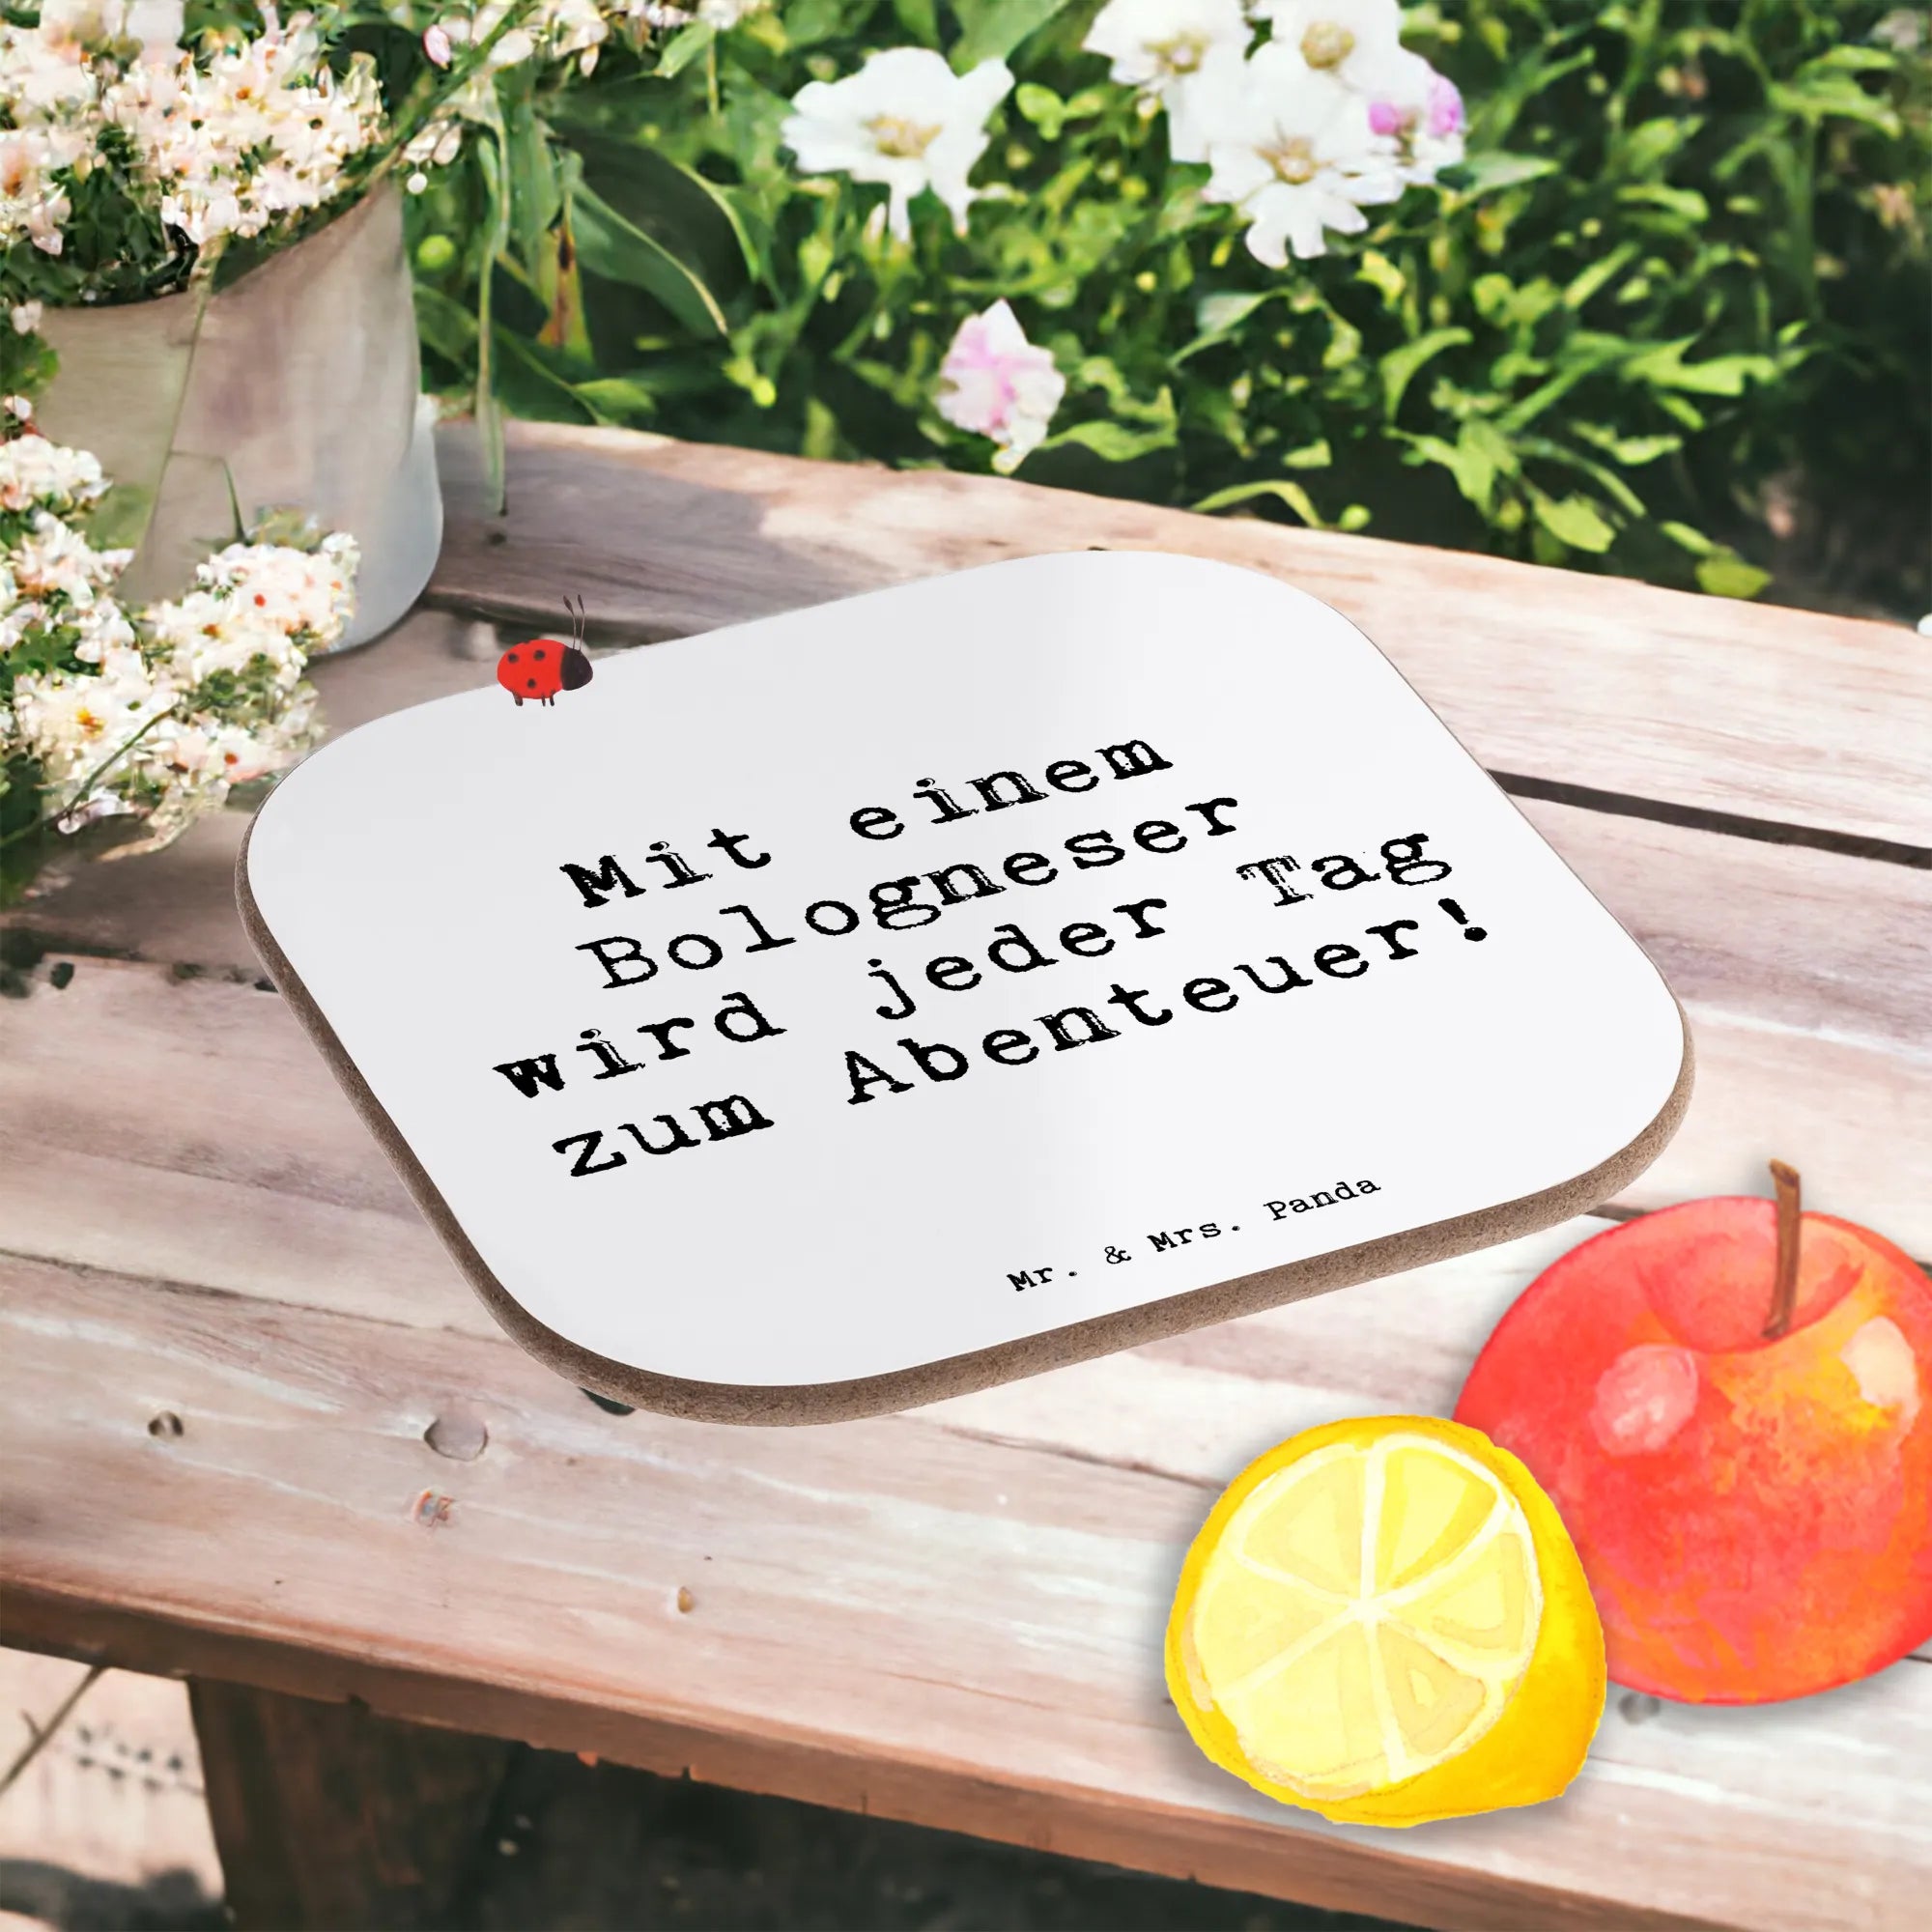 Mit einem
Bologneser
wird jeder Tag
zum Abenteuer!
Mr. & Mrs. Panda